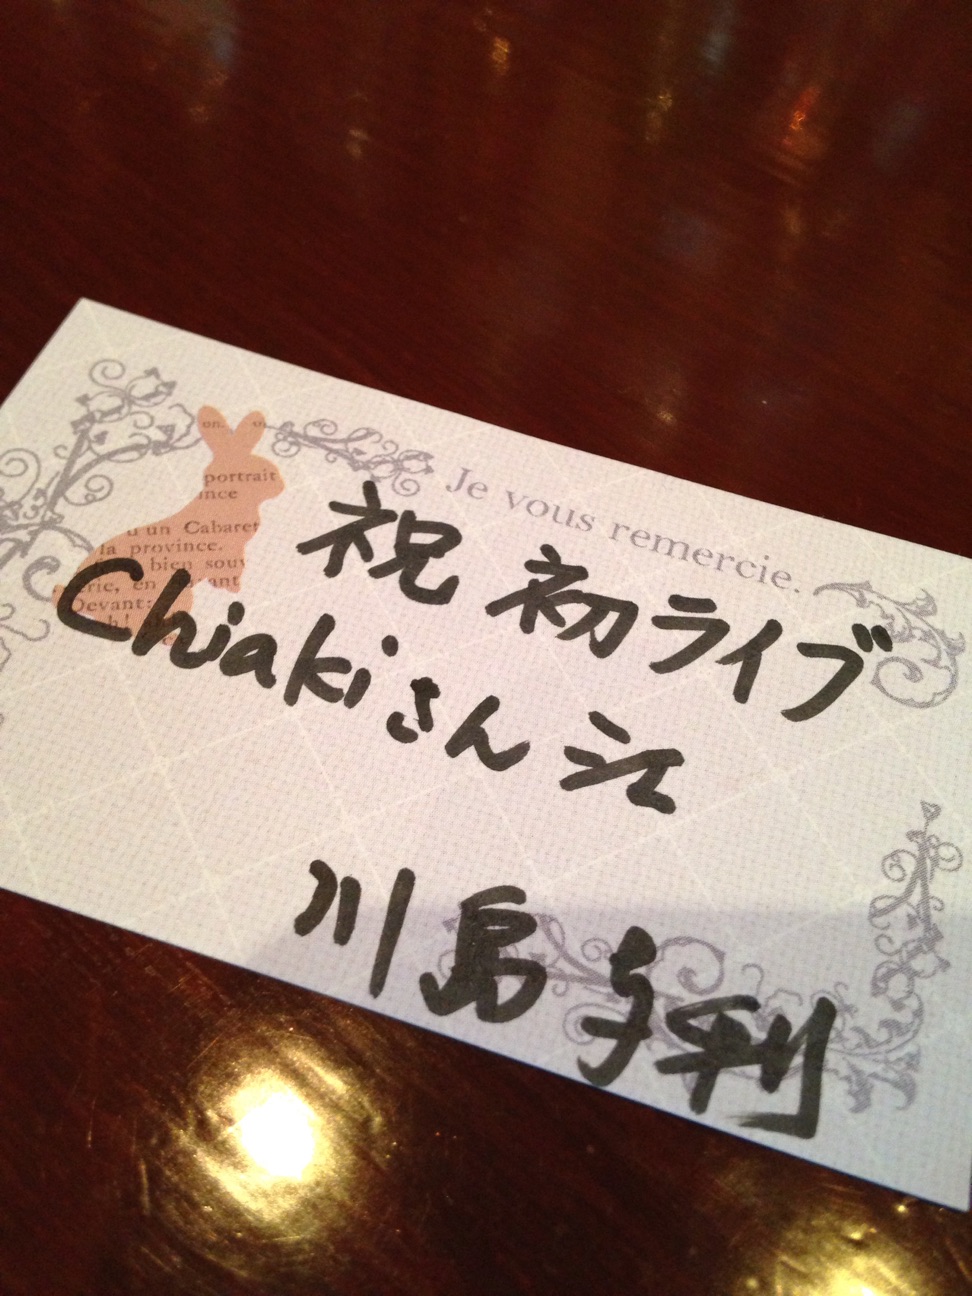 Je vous remercie.
on.
portrait
ince
d'un Cabaret
la province.
bien souv
Devant:
祝 初ライブ
Chiakiさん江
川島